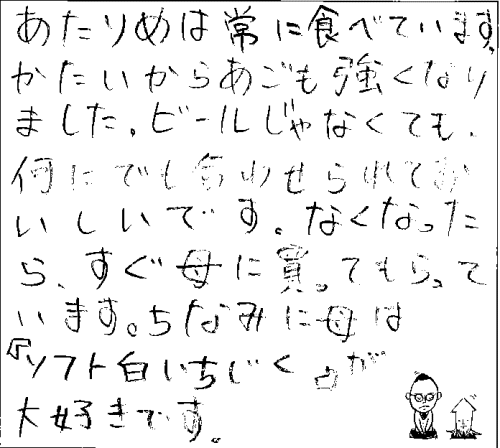 あたりめは常に食べています。
かたいからあごも強くなり
ました。ビールじゃなくても、
何にでも合わせられてお
いしいです。なくなった
ら、すぐ母に買ってもらって
います。ちなみに母は
『ソフト白いちじく』が
大好きです。